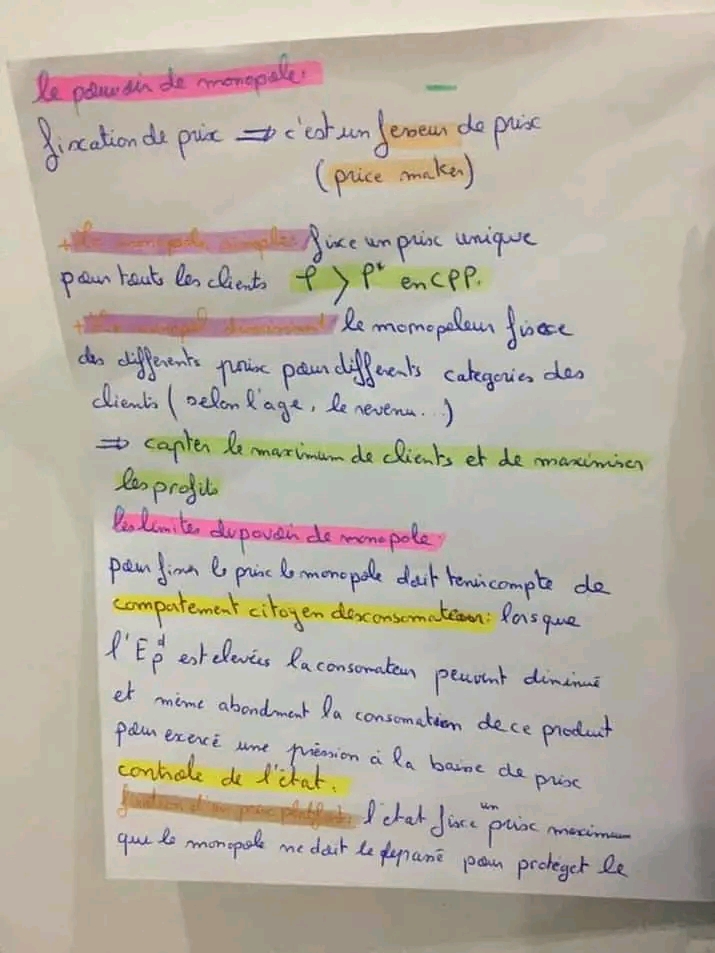 le pouvoir de monopole:
fixation de prix ⇒ c'est un feseur de prix
(price maker)
+ le monopole simple: fixe un prix unique
pour touts les clients P > P* en CPP.
+ le monopol discriminant le monopoleur fixe
des differents prix pour differents categories des
clients (selon l'age, le revenu...)
⇒ capter le maximum de clients et de maximiser
les profits
les limites du pouvoir de monopole:
pour fixer le prix le monopole doit tenir compte de
comportement citoyen des consomateur: lorsque
l'E d p est elevées la consomateur peuvent diminué
et même abondment la consomation de ce produit
pour exercé une préssion à la baisse de prix
controle de l'état:
fixation d'un prix plafond: l'état fixe un prix maximum
que le monopole ne doit le depassé pour protéget le